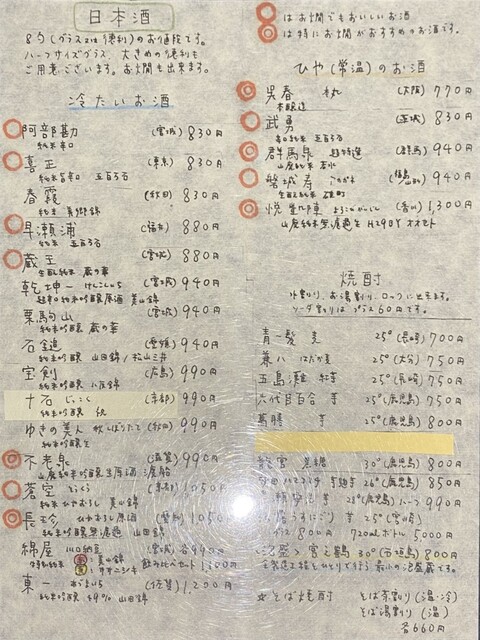 日本酒
8勺(グラス又は徳利)のお値段です。
ハーフサイズグラス、大きめの徳利も
ご用意ございます。お燗も出来ます。
冷たいお酒
阿部勘 (宮城) 830円
純米辛口
喜正 (東京) 830円
純米 五百万石
春霞 (秋田) 830円
純米 美郷錦
早瀬浦 (福井) 880円
純米 五百万石
蔵王 (宮城) 880円
純米 蔵の華
乾坤一 けんこんいち (宮城) 940円
純米吟醸原酒 美山錦
栗駒山 (宮城) 940円
純米吟醸 蔵の華
石鎚 (愛媛) 940円
純米吟醸 山田錦/松山三井
宝剣 (広島) 990円
純米吟醸 八反錦
十石 じっこく (京都) 990円
純米吟醸 祝
ゆきの美人 秋しぼりたて (秋田) 990円
純米吟醸
不老泉 (滋賀) 990円
山廃純米吟醸生原酒 渡船
蒼空 そうくう (京都) 1050円
純米 ひやおろし 美山錦
長珍 ひやおろし原酒 (愛知) 1050円
純米吟醸無濾過 山田錦
綿屋 (宮城) 各990円
美山錦
ササニシキ 飲み比べセット 1,300円
東一 あづまいち (佐賀) 1,200円
純米吟醸 49% 山田錦
はお燗でもおいしいお酒
は特にお燗がおすすめのお酒です。
ひや(常温)のお酒
呉春 本丸 (大阪) 770円
本醸造
武勇 (茨城) 830円
辛口純米 五百万石
群馬泉 超特選 (群馬) 940円
山廃純米 若水
磐城寿 (福島) 940円
悦凱陣 よろこびがいじん (香川) 1,300円
山廃純米無濾過生 H29BY オオセト
焼酎
水割り、お湯割り、ロックに出来ます。
ソーダ割りはプラス60円です。
青髭 麦 25°(長崎) 700円
兼八 はだか麦 25°(大分) 750円
五島灘 紅芋 25°(長崎) 750円
六代目百合 芋 25°(鹿児島) 750円
萬膳 芋 25°(鹿児島) 800円
龍宮 黒糖 30°(鹿児島) 800円
26°(鹿児島) 850円
28°(鹿児島) ハーフ 990円
芋 25°(宮崎)
グラス 800円 720mlボトル 5000円
泡盛 宮之鶴 30°(石垣島) 800円
☆そば焼酎 そば茶割り(温・冷)
そば湯割り(温)
各660円